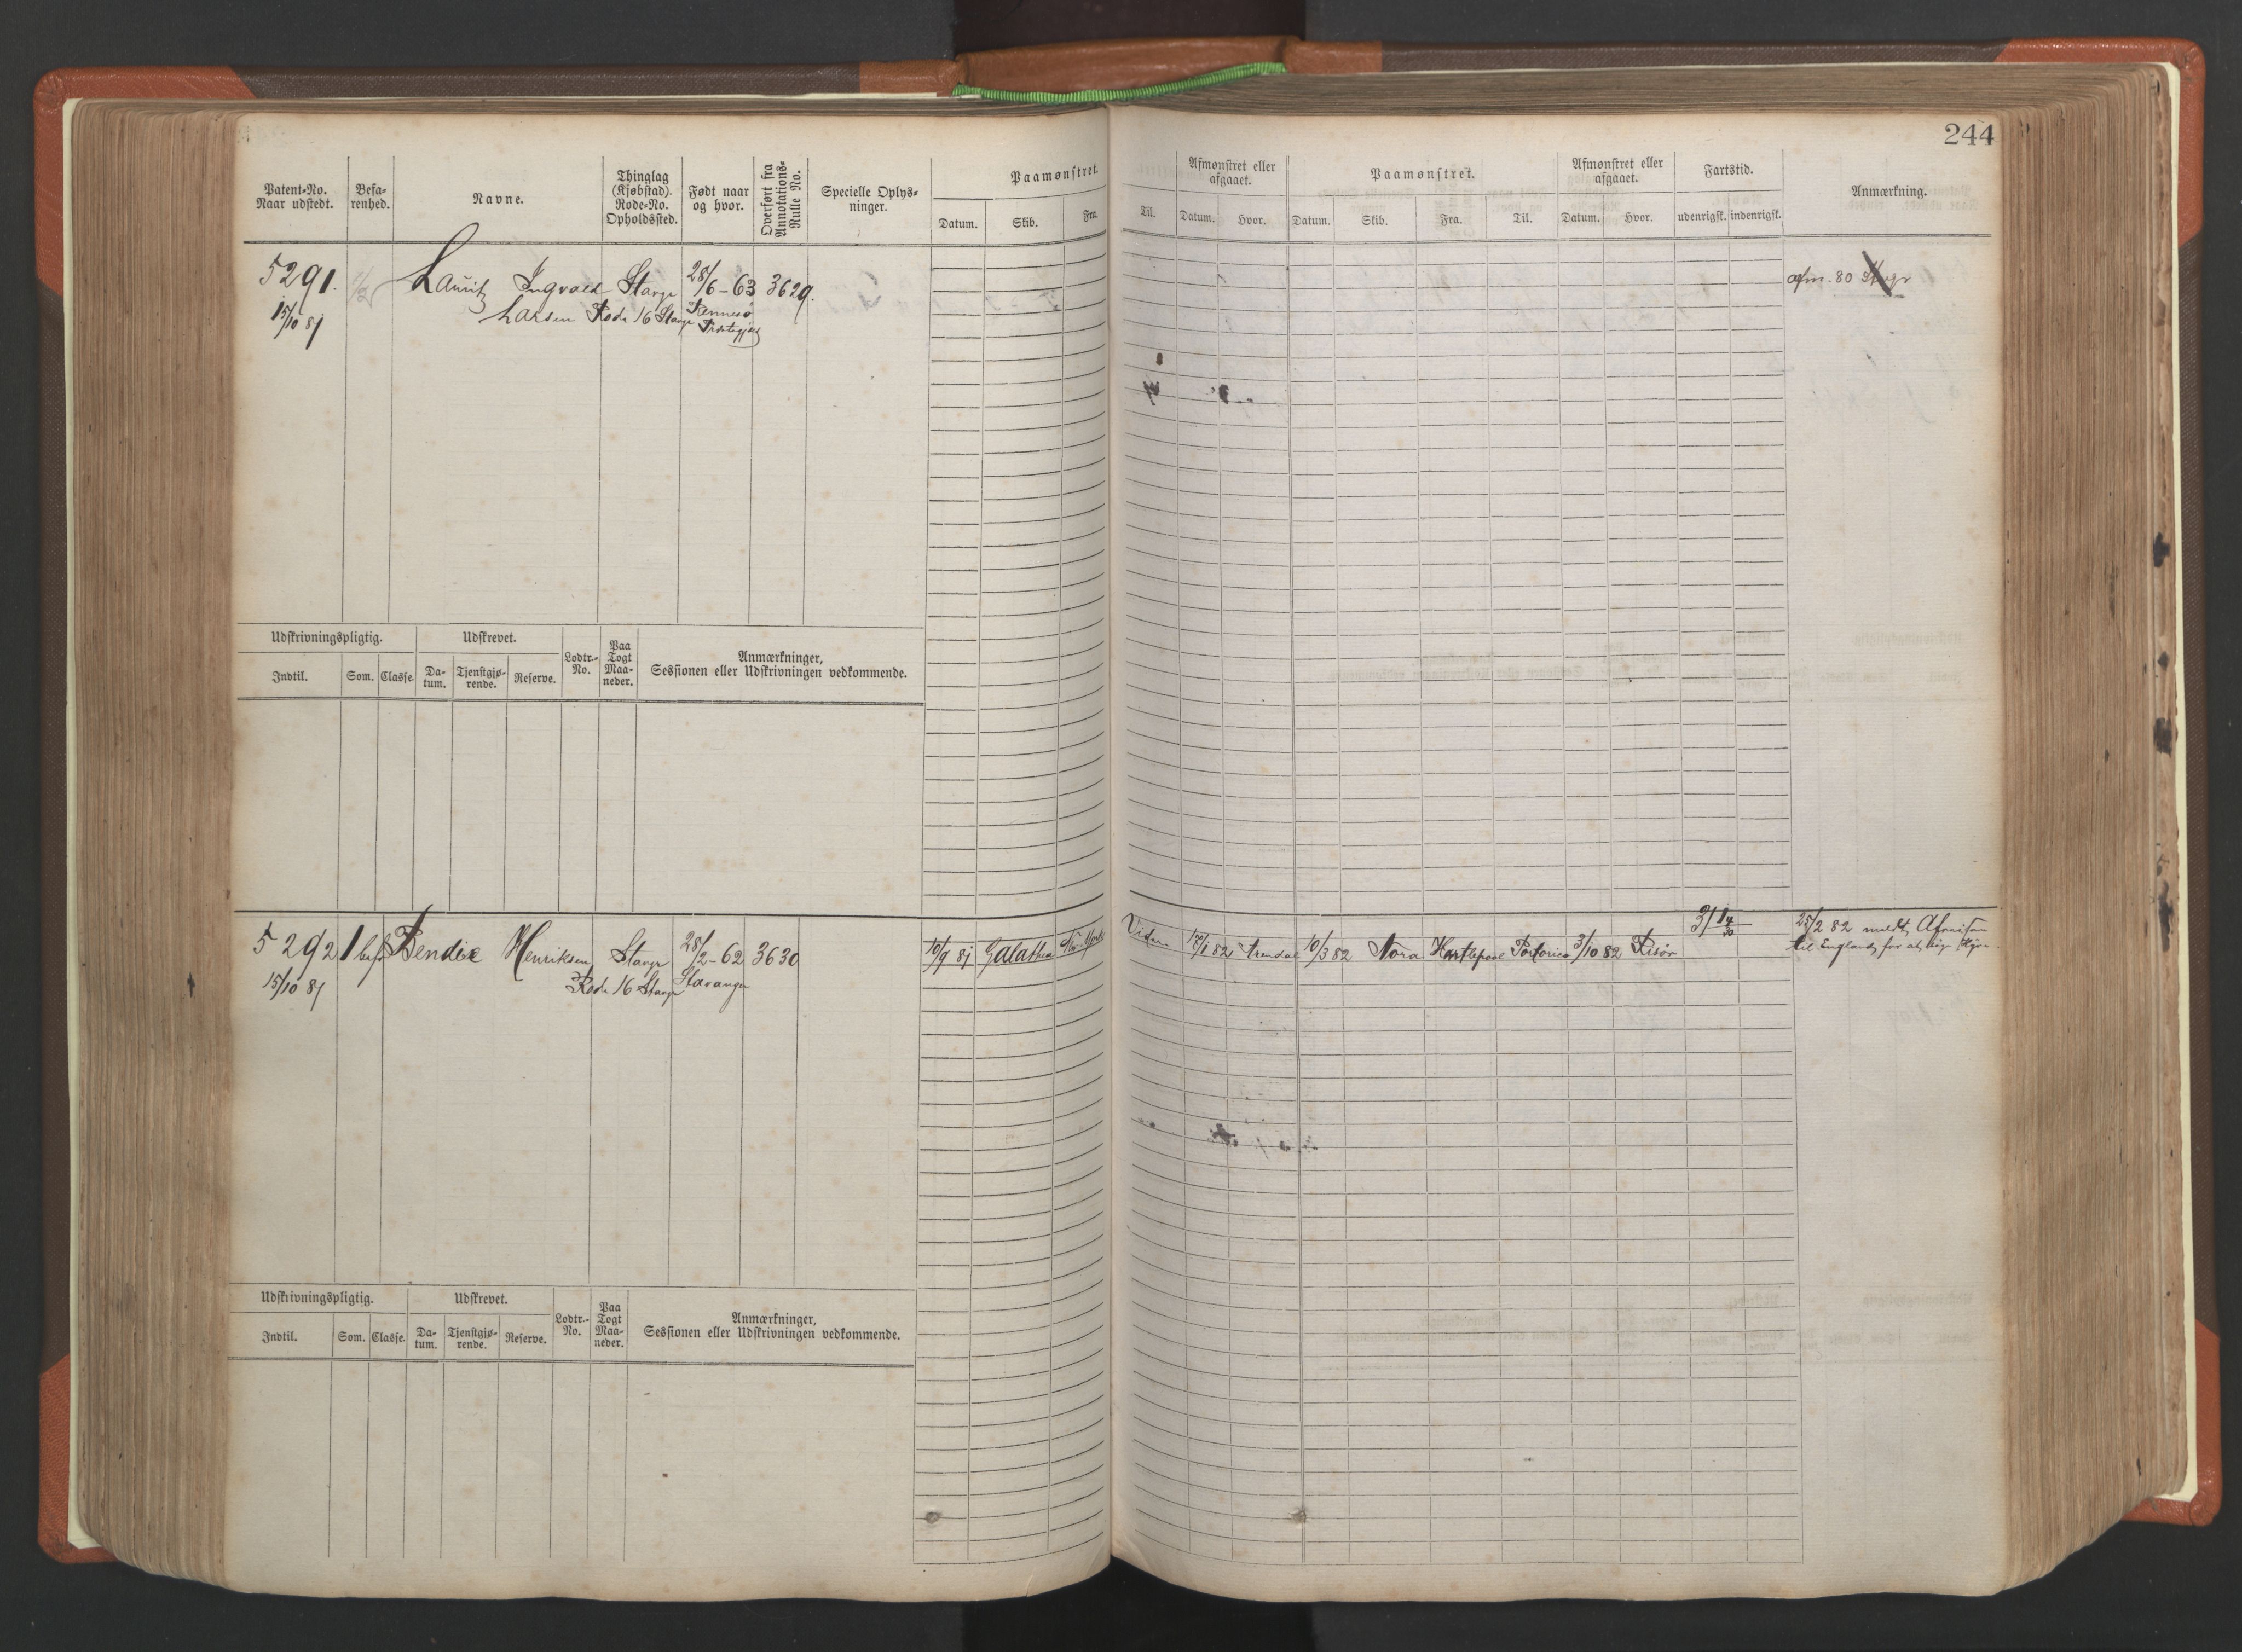 244
Patent-No. Naar udstedt. Befa-renhed. Navne. Thinglag (Kjøbstad). Rode-No. Opholdssted. Født naar og hvor. Overført fra Annotations-Rulle No. Specielle Oplys-ninger. Paamønstret. Afmønstret eller afgaaet. Paamønstret. Afmønstret eller afgaaet. Fartstid. Anmærkning.
Datum. Skib. Fra. Til. Datum. Hvor. Datum. Skib. Fra. Til. Datum. Hvor. udenrigsk. indenrigsk.
5291. Lauritz Ingvald Stavgr 28/6-63 3629. afm. 80
15/10 81 Larsen Rode 16 Stavgr Rennesø
Udskrivningspligtig. Udskrevet. Lodtr.-No. Paa Togt Maa-neder. Anmærkninger, Sessionen eller Udskrivningen vedkommende.
Indtil. Som. Classe. Da-tum. Tjenstgjø-rende. Reserve.
5292 1 bef Bendix Henriksen Stavgr 28/2-62 3630 10/9 81 Galathea New York 82 Arendal 10/3 82 Nora Hartlepool Portorico 3/10 82 Risør 25/2 82 meldt Afreisen
15/10 81 Rode 16 Stavgr Stavanger til England for at søge Hyre.
Udskrivningspligtig. Udskrevet. Lodtr.-No. Paa Togt Maa-neder. Anmærkninger, Sessionen eller Udskrivningen vedkommende.
Indtil. Som. Classe. Da-tum. Tjenstgjø-rende. Reserve.